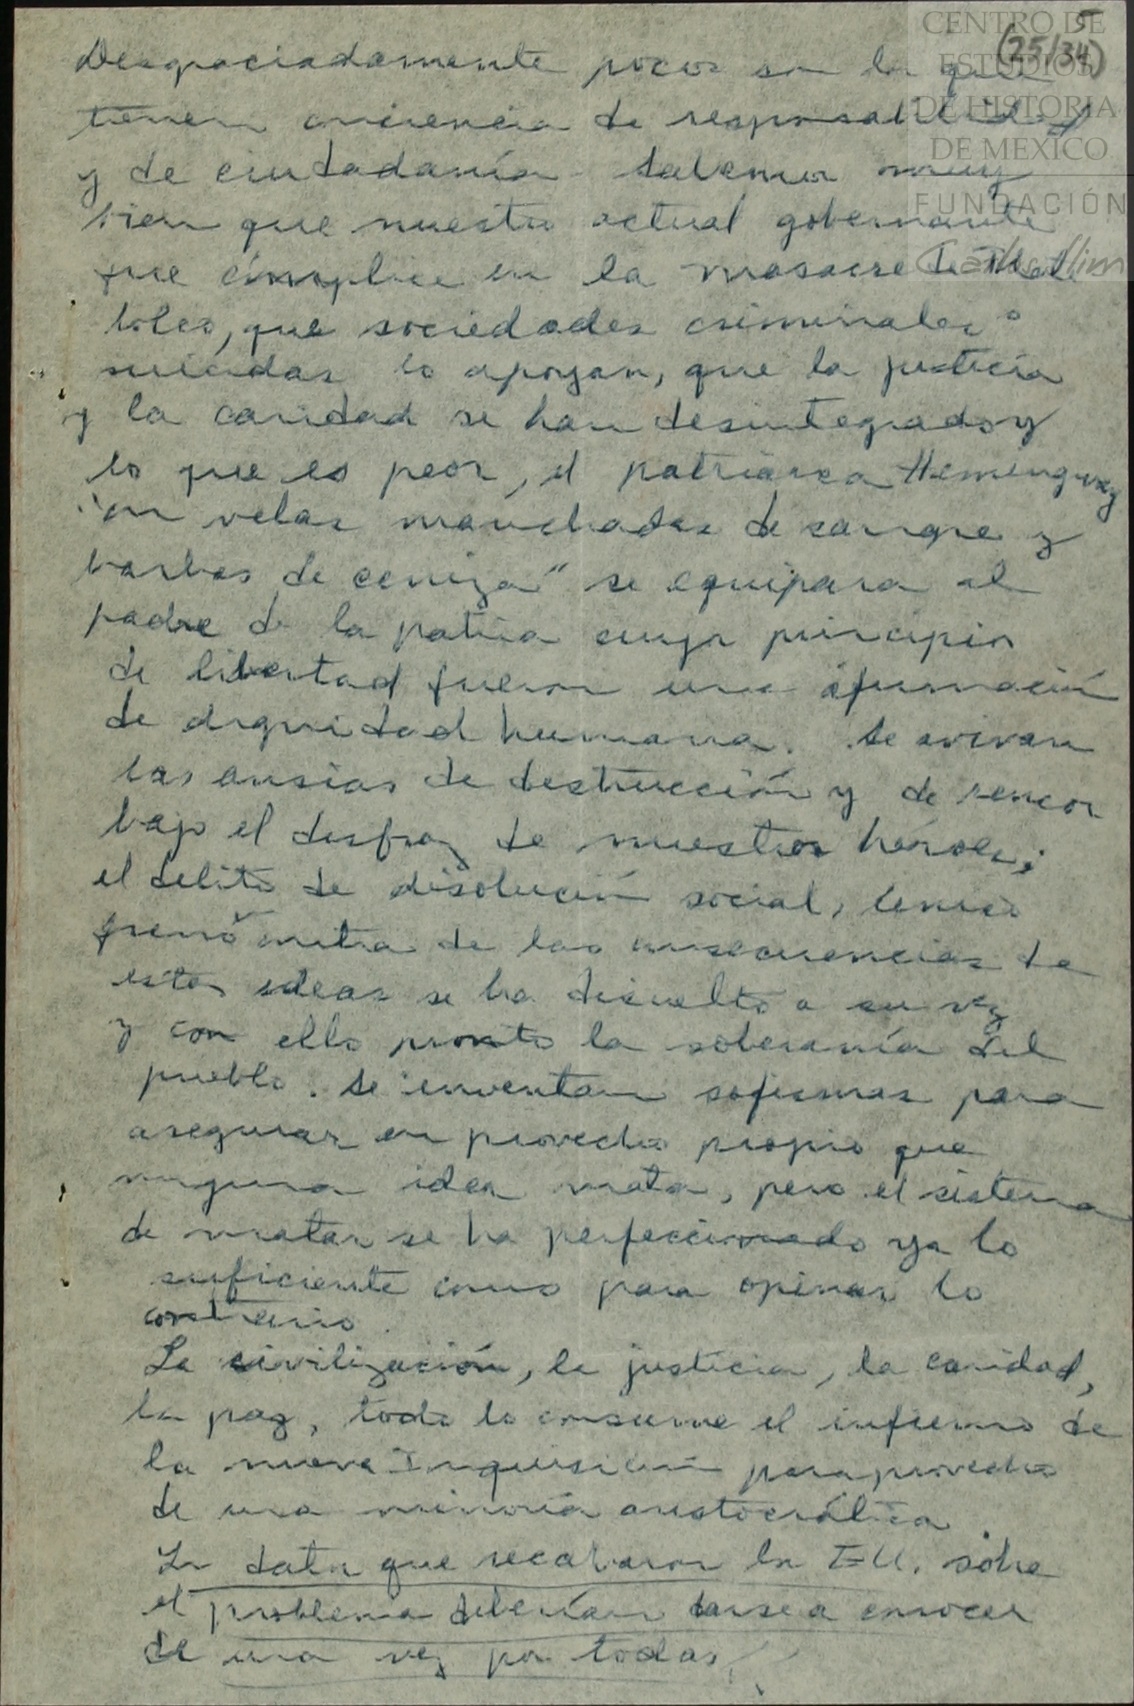 CENTRO DE
ESTUDIOS
DE HISTORIA
DE MÉXICO
FUNDACIÓN
Carlos Slim
5
(25/34)
Desgraciadamente pocos son los que
tienen conciencia de responsabilidad
y de ciudadanía. Sabemos muy
bien que nuestro actual gobernante
fue cómplice en la masacre de Tlate
lolco, que sociedades criminales o
suicidas lo apoyan, que la justicia
y la caridad se han desintegrado y
lo que es peor, el patriarca Hemingway
"con velas manchadas de sangre y
barbas de ceniza" se equipara al
padre de la patria cuyos principios
de libertad fueron una afirmación
de dignidad humana. Se avivan
las ansias de destrucción y de rencor
bajo el disfraz de nuestros héroes;
el delito de disolución social, único
freno contra de las consecuencias de
estas ideas se ha disuelto a su vez
y con ello pronto la soberanía del
pueblo. Se inventan sofismas para
asegurar en provecho propio que
ninguna idea mata, pero el sistema
de matar se ha perfeccionado ya lo
suficiente como para opinar lo
contrario.
La civilización, la justicia, la caridad,
la paz, todo lo consume el infierno de
la nueva Inquisición para provecho
de una minoría aristocrática.
Los datos que recabaron los E.U. sobre
el problema deberían darse a conocer
de una vez por todas.